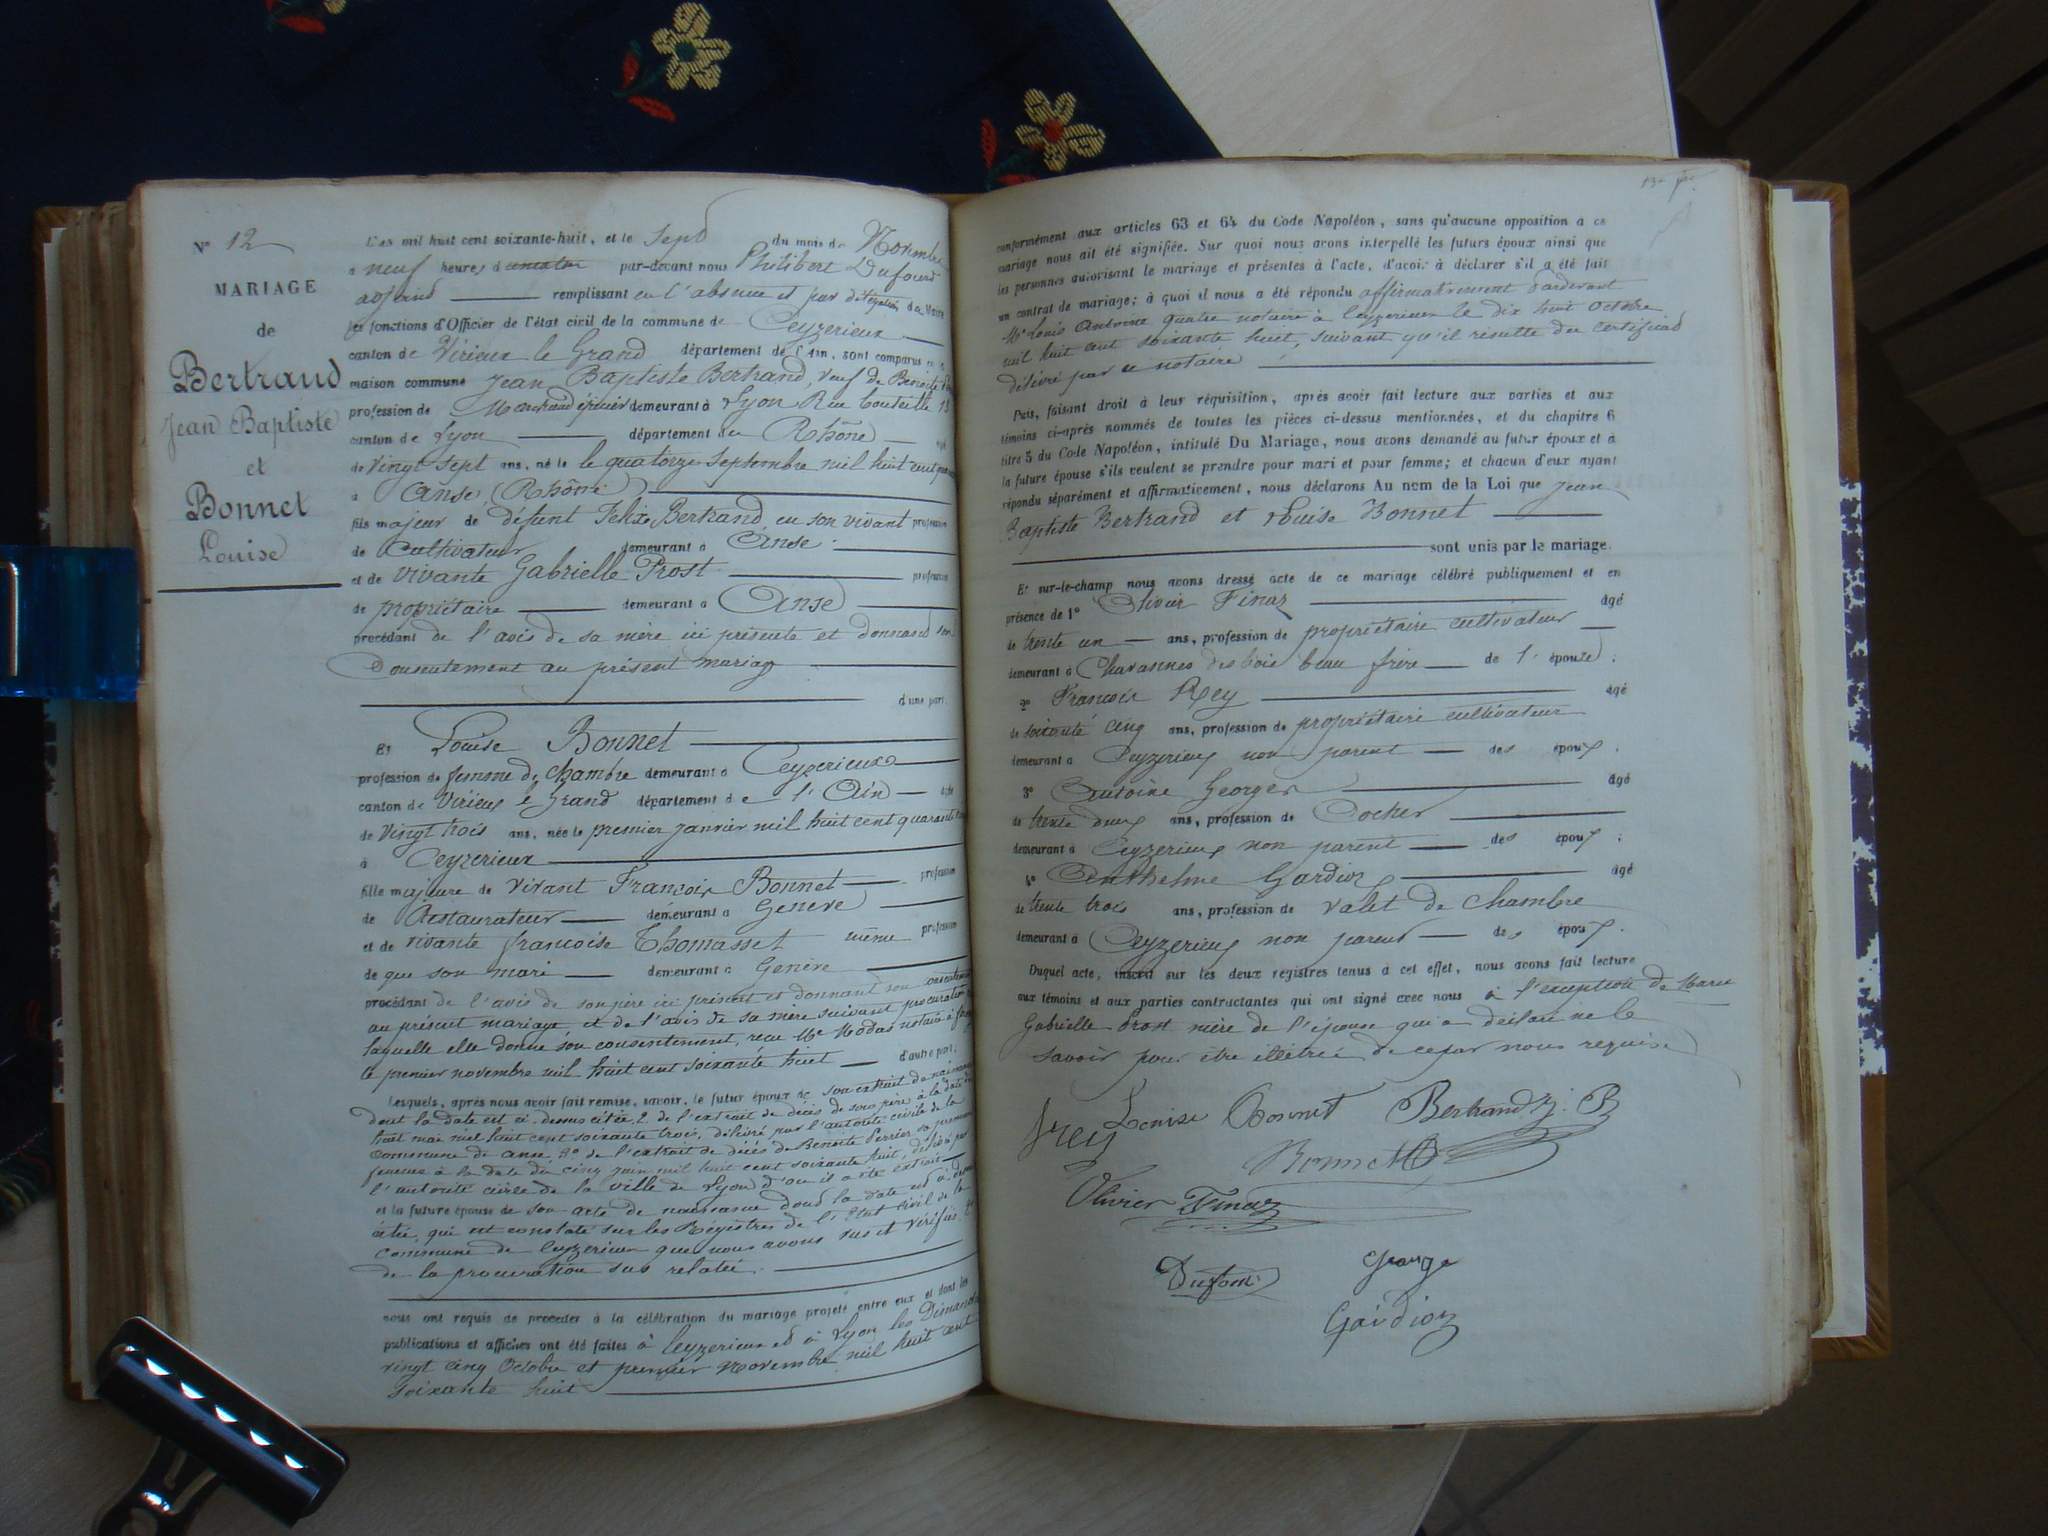 N° 12
MARIAGE
de
Bertrand
Jean Baptiste
et
Bonnet
Louise
L'an mil huit cent soixante-huit, et le Sept du mois de Novembre
à neuf heures d par-devant nous Philibert Dufourd
adjoint remplissant en l'absence et par délégation du Maire
les fonctions d'Officier de l'état civil de la commune de Ceyzerieux
canton de Virieux le Grand département de l'Ain, sont comparus en la
maison commune Jean Baptiste Bertrand, veuf de Benoite
profession de Marchand épicier demeurant à Lyon Rue
canton de Lyon département du Rhône âgé
de vingt sept ans, né le le quatorze Septembre mil huit cent
à Anse (Rhône)
fils majeur de défunt Felix Bertrand, en son vivant profession
de Cultivateur demeurant à Anse
et de vivante Gabrielle Prost profession
de propriétaire demeurant à Anse
procédant de l'avis de sa mère ici présente et donnant son
Consentement au présent mariage
d'une part.
Et Louise Bonnet
profession de femme de chambre demeurant à Ceyzerieux
canton de Virieux le Grand département de l'Ain âgée
de vingt trois ans, née le premier janvier mil huit cent quarante
à Ceyzerieux
fille majeure de vivant François Bonnet profession
de Restaurateur demeurant à Genève
et de vivante francoise Thomasset même profession
de que son mari demeurant à Genève
procédant de l'avis de son père ici présent et donnant son consentement
au présent mariage et de l'avis de sa mère suivant procuration
laquelle elle donne son consentement, recu Me notaire à
le premier novembre mil huit cent soixante huit d'autre part.
Lesquels, après nous avoir fait remise, savoir, le futur époux de son extrait de naissance
dont la date est ci dessus citée, 2° de l'extrait de décès de son père à la date du
huit mai mil huit cent soixante trois, délivré par l'autorité civile de la
commune de anse 3° de l'extrait de décès de Benoite Perrier sa première
femme à la date du cinq juin mil huit cent soixante huit, délivré par
l'autorité civile de la ville de Lyon d'où il a été extrait
et la future épouse de son acte de naissance dont la date est ci dessus
citée, qui est constaté sur les Régistres de l'Etat civil de la
commune de Ceyzerieux que nous avons vus et vérifiés
de la procuration sus relatée.
nous ont requis de procéder à la célébration du mariage projeté entre eux et dont les
publications et affiches ont été faites à Ceyzerieux et à Lyon les Dimanches
vingt cinq Octobre et premier Novembre mil huit cent
Soixante huit
conformément aux articles 63 et 64 du Code Napoléon, sans qu'aucune opposition à ce
mariage nous ait été signifiée. Sur quoi nous avons interpellé les futurs époux ainsi que
les personnes autorisant le mariage et présentes à l'acte, d'avoir à déclarer s'il a été fait
un contrat de mariage; à quoi il nous a été répondu affirmativement pardevant
Me Louis Antoine notaire à Ceyzerieux le dix huit Octobre
mil huit cent soixante huit, suivant qu'il résulte du certificat
délivré par ce notaire
Puis, faisant droit à leur réquisition, après avoir fait lecture aux parties et aux
témoins ci-après nommés de toutes les pièces ci-dessus mentionnées, et du chapitre 6
titre 5 du Code Napoléon, intitulé Du Mariage, nous avons demandé au futur époux et à
la future épouse s'ils veulent se prendre pour mari et pour femme; et chacun d'eux ayant
répondu séparément et affirmativement, nous déclarons Au nom de la Loi que Jean
Baptiste Bertrand et Louise Bonnet
sont unis par le mariage.
Et sur-le-champ nous avons dressé acte de ce mariage célébré publiquement et en
présence de 1° Olivier Finaz âgé
de trente un ans, profession de propriétaire cultivateur
demeurant à Chavannes des bois beau frère de l'épouse;
2° François Rey âgé
de soixante cinq ans, profession de propriétaire cultivateur
demeurant à Ceyzerieux non parent des époux;
3° Antoine Georges âgé
de trente deux ans, profession de Cocher
demeurant à Ceyzerieux non parent des époux;
4° Anthelme Gardioz âgé
de trente trois ans, profession de valet de chambre
demeurant à Ceyzerieux non parent des époux.
Duquel acte, inscrit sur les deux registres tenus à cet effet, nous avons fait lecture
aux témoins et aux parties contractantes qui ont signé avec nous à l'exception de Marie
Gabrielle Prost mère de l'épouse qui a déclaré ne le
savoir pour être illétrée de ce par nous requise
frey Louise Bonnet Bertrand j. B
Bonnet
Olivier Finaz
Dufour George
Gardioz